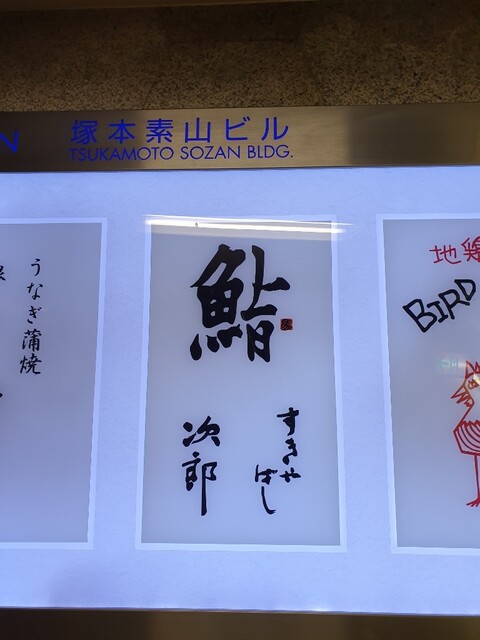 塚本素山ビル
TSUKAMOTO SOZAN BLDG.
うなぎ蒲焼
鮨
すきやばし
次郎
地鶏
BIRD